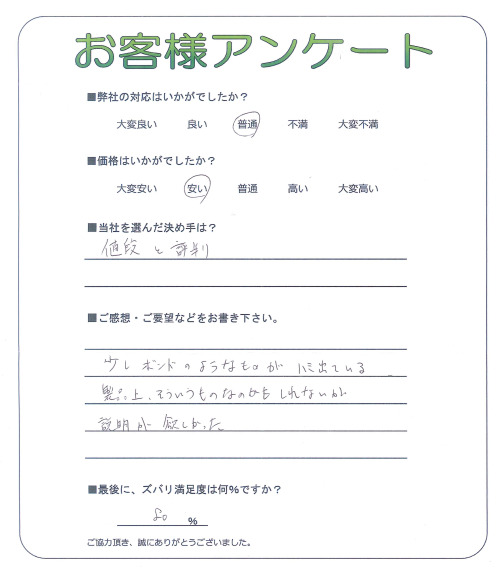 お客様アンケート
■弊社の対応はいかがでしたか？
大変良い 良い 普通 不満 大変不満
■価格はいかがでしたか？
大変安い 安い 普通 高い 大変高い
■当社を選んだ決め手は？
値段と評判
■ご感想・ご要望などをお書き下さい。
少しボンドのようなものがハミ出ている
製品上、そういうものなのかもしれないが
説明が欲しかった
■最後に、ズバリ満足度は何%ですか？
80 %
ご協力頂き、誠にありがとうございました。